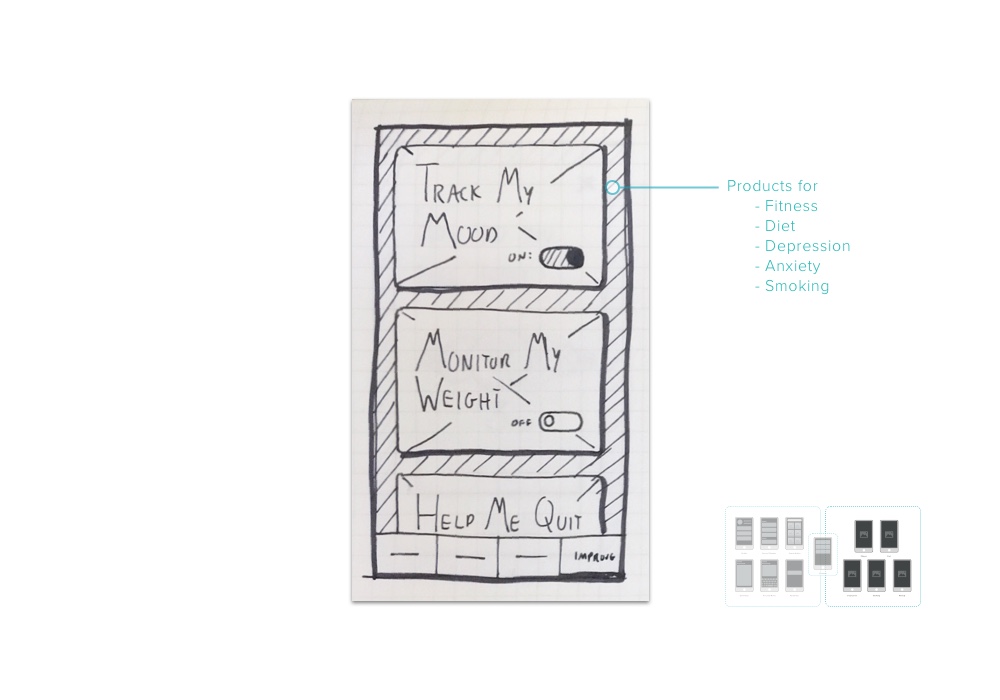 TRACK MY
MOOD
ON:
MONITOR MY
WEIGHT
OFF
HELP ME QUIT
IMPROVE
Products for
- Fitness
- Diet
- Depression
- Anxiety
- Smoking